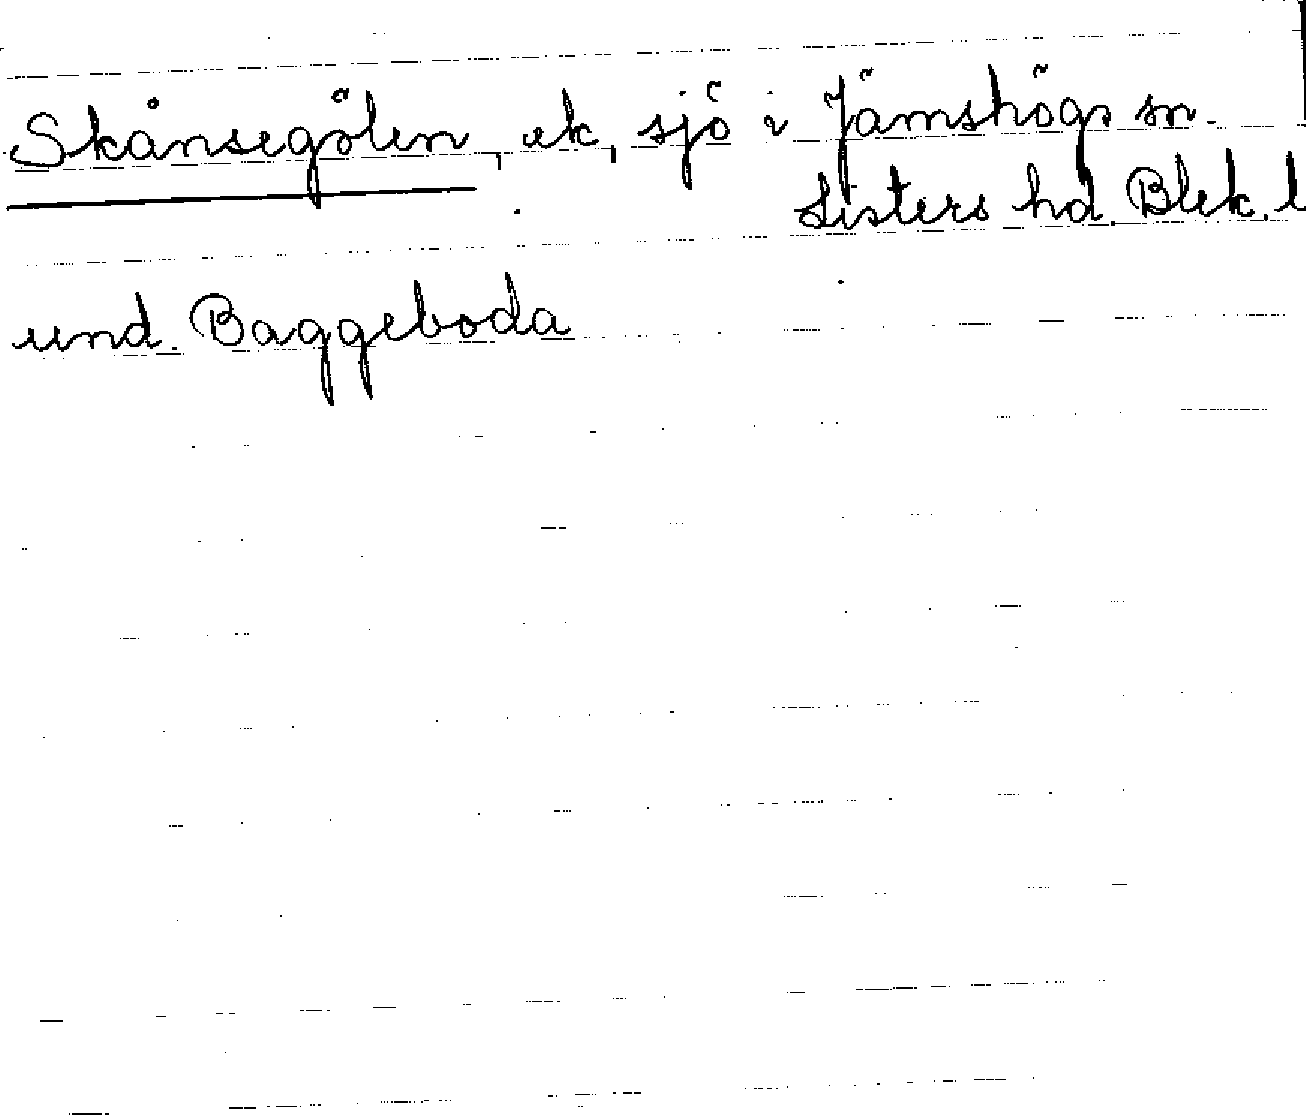 Skånsegölen, ek, sjö i Jämshögs sn.
Listers hd. Blek. l
und. Baggeboda